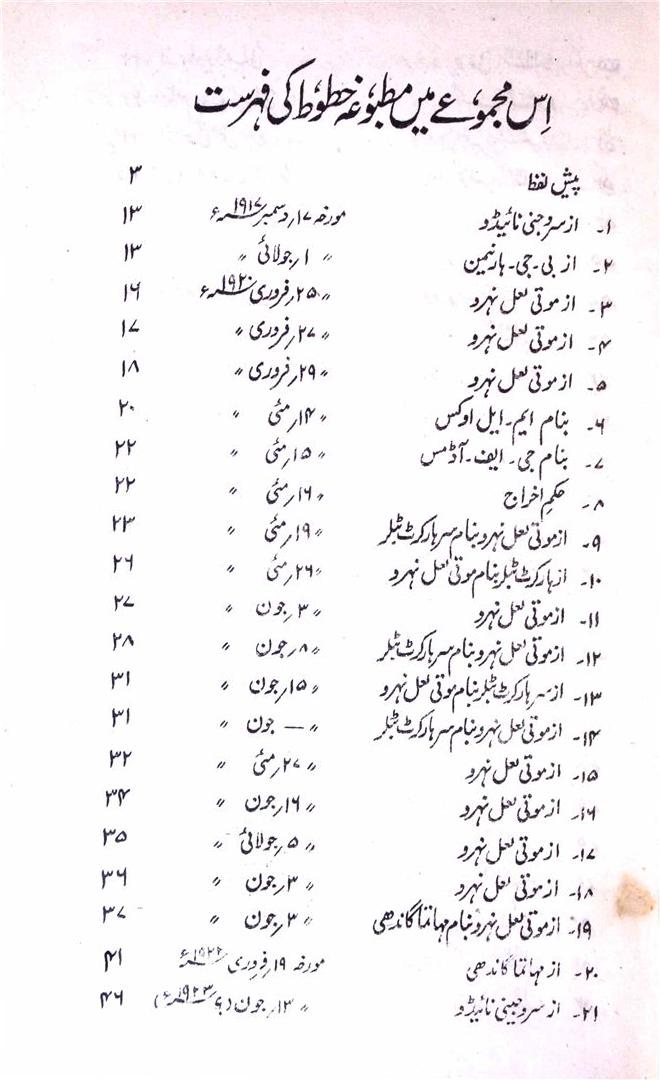 اِس مجموعے میں مطبوعہ خطوط کی فہرست
پیش لفظ ۳
۱۔ از سروجنی نائیڈو مورخہ ۱۷؍دسمبر ۱۹۱۷ء ۱۳
۲۔ از بی۔جی۔ہارنیمن " ۱؍جولائی " ۱۳
۳۔ از موتی لعل نہرو " ۲۵؍فروری ۱۹۲۰ء ۱۶
۴۔ از موتی لعل نہرو " ۲۷؍فروری " ۱۷
۵۔ از موتی لعل نہرو " ۲۹؍فروری " ۱۸
۶۔ بنام ایم۔ایل اوکس " ۱۴؍مئی " ۲۰
۷۔ بنام جی۔ ایف۔آڈمس " ۱۵؍مئی " ۲۲
۸۔ حکمِ اخراج " ۱۶؍مئی " ۲۲
۹۔ از موتی لعل نہرو بنام سر ہارکرٹ بٹلر " ۱۹؍مئی " ۲۳
۱۰۔ از ہارکرٹ بٹلر بنام موتی لعل نہرو " ۲۶؍مئی " ۲۶
۱۱۔ از موتی لعل نہرو " ۳؍جون " ۲۷
۱۲۔ از موتی لعل نہرو بنام سر ہارکرٹ بٹلر " ۸؍جون " ۲۸
۱۳۔ از سر ہارکرٹ بٹلر بنام موتی لعل نہرو " ۱۵؍جون " ۳۱
۱۴۔ از موتی لعل نہرو بنام سر ہارکرٹ بٹلر " — جون " ۳۱
۱۵۔ از موتی لعل نہرو " ۲۷؍مئی " ۳۲
۱۶۔ از موتی لعل نہرو " ۱۶؍جون " ۳۴
۱۷۔ از موتی لعل نہرو " ۵؍جولائی " ۳۵
۱۸۔ از موتی لعل نہرو " ۳؍جون " ۳۶
۱۹۔ از موتی لعل نہرو بنام مہاتما گاندھی " ۳؍جون " ۳۷
۲۰۔ از مہاتما گاندھی مورخہ ۱۹؍فروری ۱۹۲۲ء ۴۱
۲۱۔ از سروجینی نائیڈو " ۱۳؍جون (؟ ۱۹۲۳ء) ۴۶